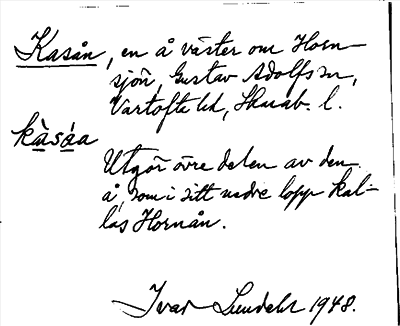 Kasån, en å väster om Horn-
sjön, Gustav Adolfs sn,
Vartofta hd, Skarab. l.
kàsáa
Utgör övre delen av den
å, som i sitt nedre lopp kal-
las Hornån.
Ivar Lundahl 1948.